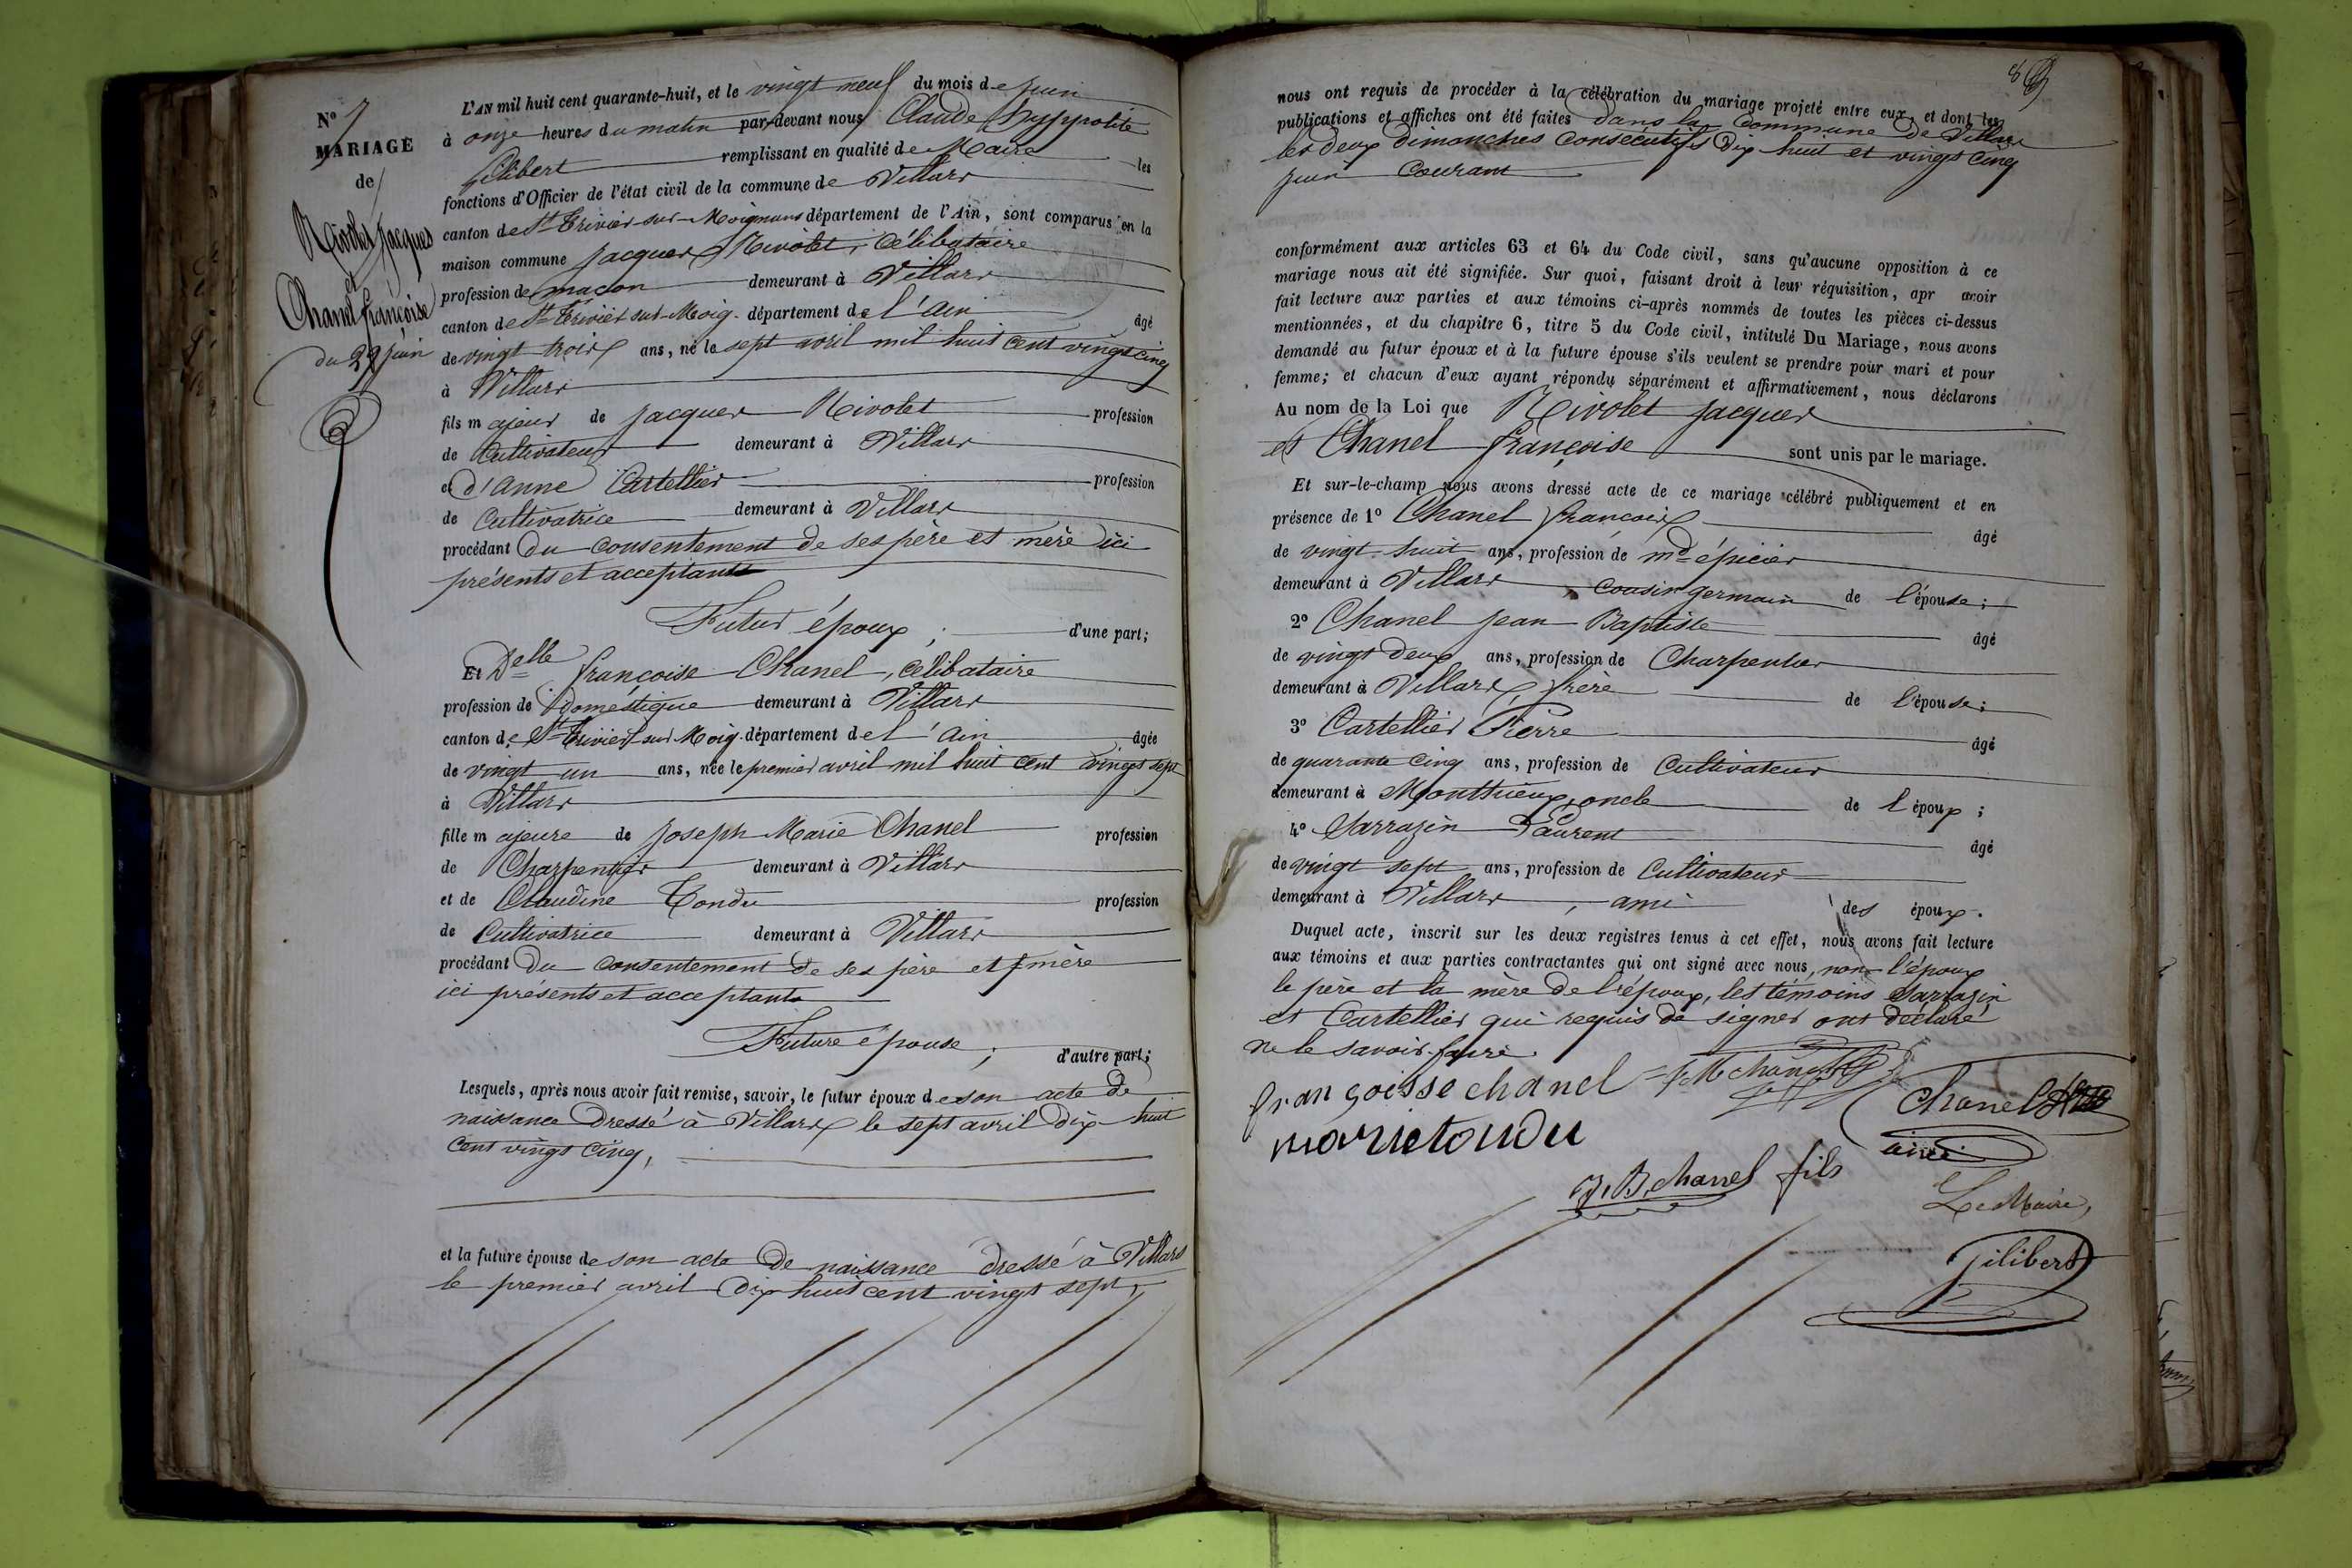 L'AN mil huit cent quarante-huit, et le vingt neuf du mois de juin
à onze heures du matin par-devant nous Claude hyppolite
Gilibert remplissant en qualité de Maire les
fonctions d'Officier de l'état civil de la commune de Villars
canton de St Trivier-sur-Moignans département de l'Ain, sont comparus en la
maison commune Jacques Nivolet, Célibataire
profession de maçon demeurant à Villars
canton de St Trivier sur-Moig. département de l'Ain âgé
de vingt trois ans, né le sept avril mil huit cent vingt cinq
à Villars
fils majeur de Jacques Nivolet profession
de Cultivateur demeurant à Villars
et d'Anne Cartellier profession
de Cultivatrice demeurant à Villars
procédant du consentement de ses père et mère ici
présents et acceptants
Futur époux ; d'une part;
Et Delle françoise Chanel, célibataire
profession de domestique demeurant à Villars
canton de St Trivier sur Moig. département de l'Ain âgée
de vingt un ans, née le premier avril mil huit cent vingt sept
à Villars
fille majeure de Joseph Marie Chanel profession
de Charpentier demeurant à Villars
et de Claudine Tondu profession
de Cultivatrice demeurant à Villars
procédant du consentement de ses père et mère
ici présents et acceptants
Future épouse ; d'autre part;
Lesquels, après nous avoir fait remise, savoir, le futur époux de son acte de
naissance dressé à Villars le sept avril dix-huit
cent vingt cinq,
et la future épouse de son acte de naissance dressé à Villars
le premier avril dix huit cent vingt sept,
No 7
MARIAGE
de
Nivolet Jacques
et
Chanel françoise
du 29 juin
8
nous ont requis de procéder à la célébration du mariage projeté entre eux, et dont les
publications et affiches ont été faites dans la Commune de Villars
les deux dimanches consécutifs dix huit et vingt cinq
juin courant
conformément aux articles 63 et 64 du Code civil, sans qu'aucune opposition à ce
mariage nous ait été signifiée. Sur quoi, faisant droit à leur réquisition, apr avoir
fait lecture aux parties et aux témoins ci-après nommés de toutes les pièces ci-dessus
mentionnées, et du chapitre 6, titre 5 du Code civil, intitulé Du Mariage, nous avons
demandé au futur époux et à la future épouse s'ils veulent se prendre pour mari et pour
femme; et chacun d'eux ayant répondu séparément et affirmativement, nous déclarons
Au nom de la Loi que Nivolet Jacques
et Chanel françoise sont unis par le mariage.
Et sur-le-champ nous avons dressé acte de ce mariage célébré publiquement et en
présence de 1° Chanel françois âgé
de vingt huit ans, profession de md épicier
demeurant à Villars, cousin germain de l'épouse;
2° Chanel Jean Baptiste âgé
de vingt deux ans, profession de Charpentier
demeurant à Villars, frère de l'épouse;
3° Cartellier Pierre âgé
de quarante cinq ans, profession de Cultivateur
demeurant à Monthieux, oncle de l'époux;
4° Sarrazin Laurent âgé
de vingt sept ans, profession de Cultivateur
demeurant à Villars, ami des époux.
Duquel acte, inscrit sur les deux registres tenus à cet effet, nous avons fait lecture
aux témoins et aux parties contractantes qui ont signé avec nous, non l'époux
le père et la mère de l'époux, les témoins Sarrazin
et Cartellier qui requis de signer ont déclaré
ne le savoir faire.
françoisse chanel J M chanel
Chanel
ainé
marietondu
J, B, chanel fils
Le Maire,
Gilibert